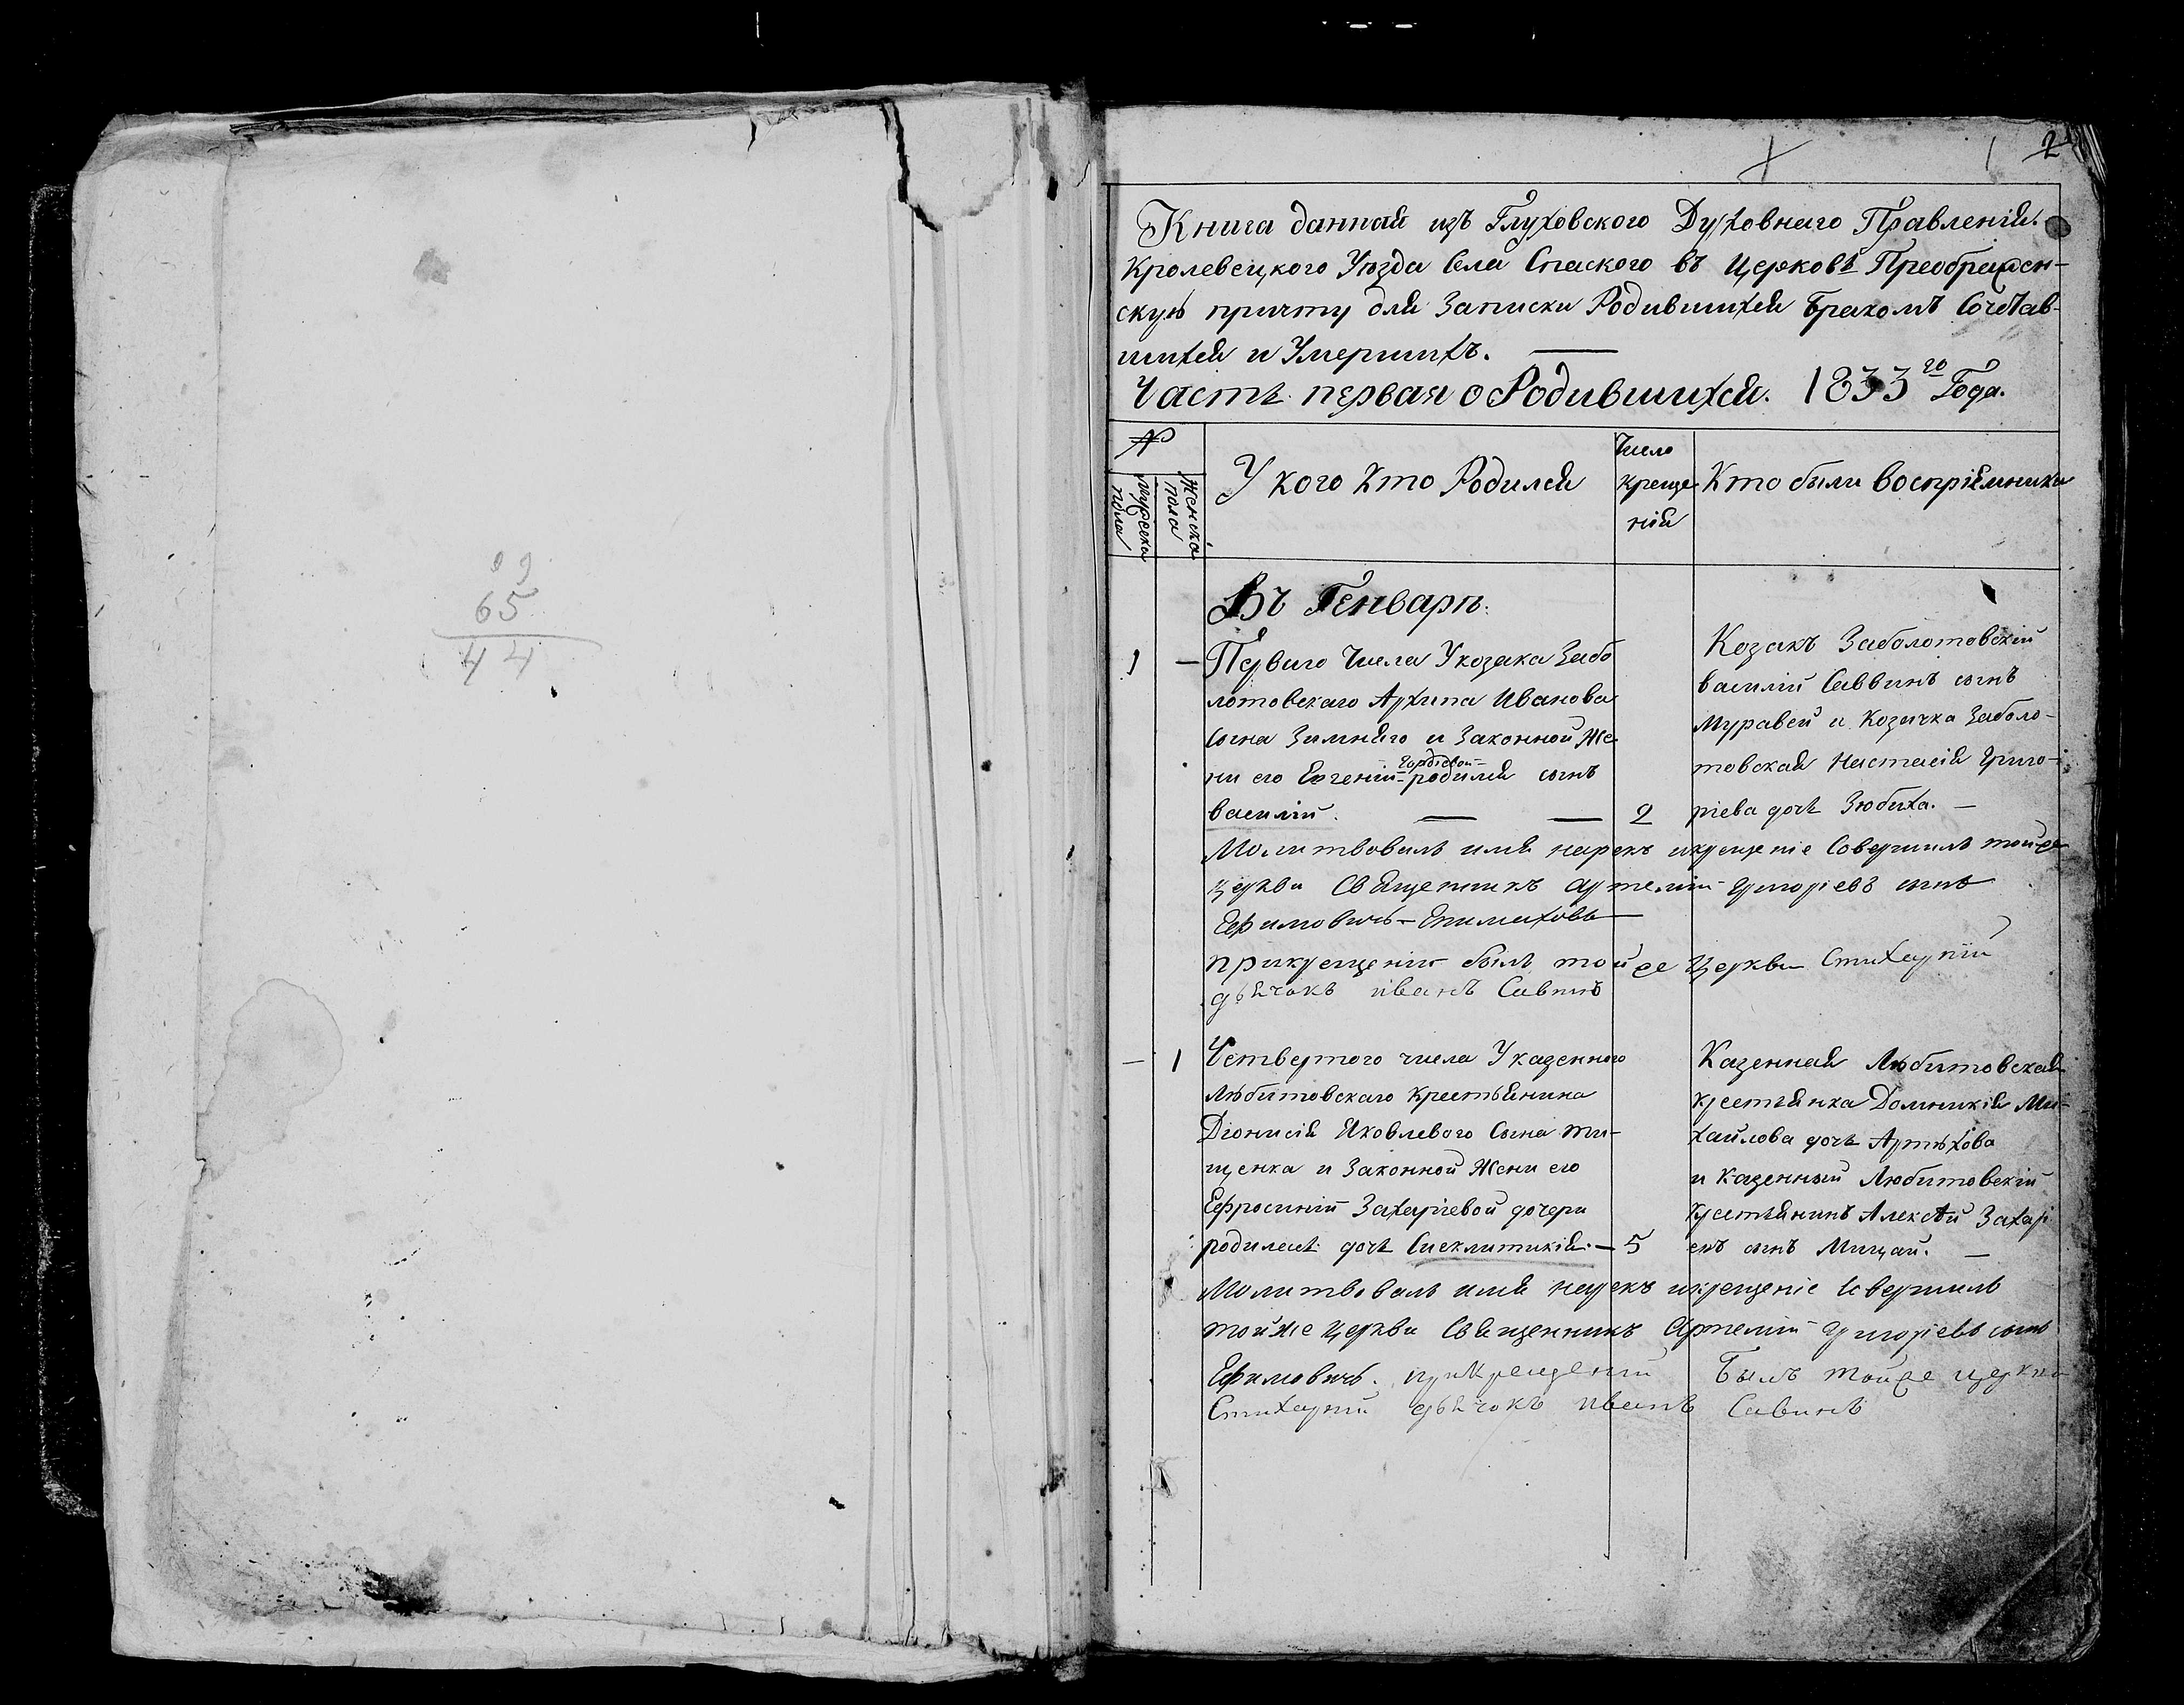 2
Книга данная изъ Глуховского Духовнаго Правленія.
Кролевецкого Уѣзда Села Спаского въ Церковь Преображен-
скую причту для Записки Родившихся Бракомъ Сочетав-
шихся и Умершихъ.
Часть первая о Родившихся. 1833го Года.
№
мужеска пола
женска пола
У кого Кто Родился
Число креще нія
Кто были воспріемники
89
65
44
Въ Генварѣ.
1 — Перваго Числа У козака Забо
лотовскаго Архипа Иванова
сына Зимняго и Законной Же
ни его Евгеніи Гордѣевой родился сынъ
василій. — — 2
Козакъ Заболотовскій
василій Саввинъ сынъ
Муравей и Козачка Заболо-
товская Настасія Григо-
ріева дочь Зюбиха. —
Молитвовалъ имя нарекъ икрещеніе Совершилъ тойже
церкви Священникъ Артемій Григоріевъ сынъ
Ефимовичъ —
прикрещеніи былъ тойже Церкви Стихарній
дьячокъ иванъ Савинъ
— 1 Четвертого числа У казенного
Любитовскаго Крестьянина
Діонисія Яковлевого Сына Ти-
щенка и Законной Жени его
Ефросиніи Захаріевой дочери
родилась дочь Сиклитикія. — 5
Казенная Любитовская
крестьянка Домникія Ми-
хайлова дочь Артюхова
и казенный Любитовскій
крестьянинъ Алексѣй Захарі
евъ сынъ Мищай. —
Молитвовалъ имя нарекъ икрещеніе Совершилъ
тойже церкви Священникъ Артемій Григоріевъ сынъ
Ефимовичъ. прикрещеніи Былъ тойже церкви
Стихарній дьячокъ иванъ Савинъ